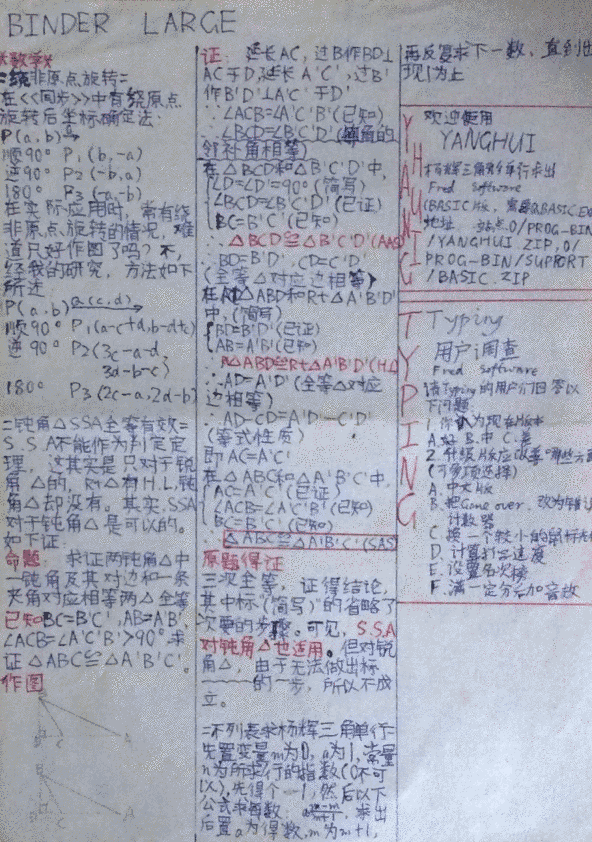 BINDER LARGE
=绕非原点旋转=
在<<同步>>中有绕原点
旋转后坐标确定法:
P(a,b)
顺90° P₁(b,-a)
逆90° P₂(-b,a)
180° P₃(-a,-b)
在实际应用时,常有绕
非原点旋转的情况,难
道只好作图了吗?不,
经我的研究,方法如下
所述
P(a,b) a(c,d)
顺90° P₁(a-c+d,b-d+c)
逆90° P₂(3c-a-d,
3d-b-c)
180° P₃(2c-a,2d-b)
=钝角△SSA全等有效=
S.S.A不能作为判定定
理,这其实是只对于锐
角△的,Rt△有H.L,钝
角△却没有。其实,SSA
对于钝角△是可以的。
如下证
命题: 求证两钝角△中
一钝角及其对边和一条
夹角对应相等两△全等
已知BC=B'C',AB=A'B'
∠ACB=∠A'C'B'>90°.求
证△ABC≌△A'B'C'。
作图
B
D C A
B
D C A
证: 延长AC,过B作BD⊥
AC于D,延长A'C',过B'
作B'D'⊥A'C'于D'
∵∠ACB=∠A'C'B'(已知)
∴∠BCD=∠B'C'D'(等角的
邻补角相等)
在△BCD和△B'C'D'中,
∠D=∠D'=90°(简写)
∠BCD=∠B'C'D'(已证)
BC=B'C'(已知)
∴△BCD≌△B'C'D'(AAS)
∴BD=B'D',CD=C'D'
(全等△对应边相等)
在Rt△ABD和Rt△A'B'D'
中,(简写)
BD=B'D'(已证)
AB=A'B'(已知)
∴Rt△ABD≌Rt△A'B'D'(HL)
∴AD=A'D'(全等△对应
边相等)
∴AD-CD=A'D'-C'D'
(等式性质)
即AC=A'C'
在△ABC和△A'B'C'中,
AC=A'C'(已证)
∠ACB=∠A'C'B'(已知)
BC=B'C'(已知)
∴△ABC≌△A'B'C'(SAS)
原题得证
三次全等,证得结论,
其中标"(简写)"的省略了
次要的步骤。可见,S.S.A
对钝角△也适用。但对锐
角△,由于无法做出标
的一步,所以不成
立。
=不列表求杨辉三角单行=
先置变量m为0,a为1,常量
n为所求行的指数(0不可
以),先得个一1,然后以下
公式求每数:a(n-m)/(m+1),求出
后置a为得数,m为m+1,
再反复求下一数,直到出
现1为止
YANGHUI
欢迎使用
YANGHUI
杨辉三角形单行求出
Fred Software
(BASIC版,需要QBASIC.EXE)
地址:站点0/PROG-BIN
/YANGHUI.ZIP,0/
PROG-BIN/SUPPORT
/BASIC.ZIP
TYPING
Typing
用户调查
Fred Software
请Typing的用户们回答以
下问题
A.好 B.中 C.差
(可多项选择)
A.中文版
C.换一个较小的鼠标
D.计算打字速度
E.设置名次榜
F.满一定分后加音效